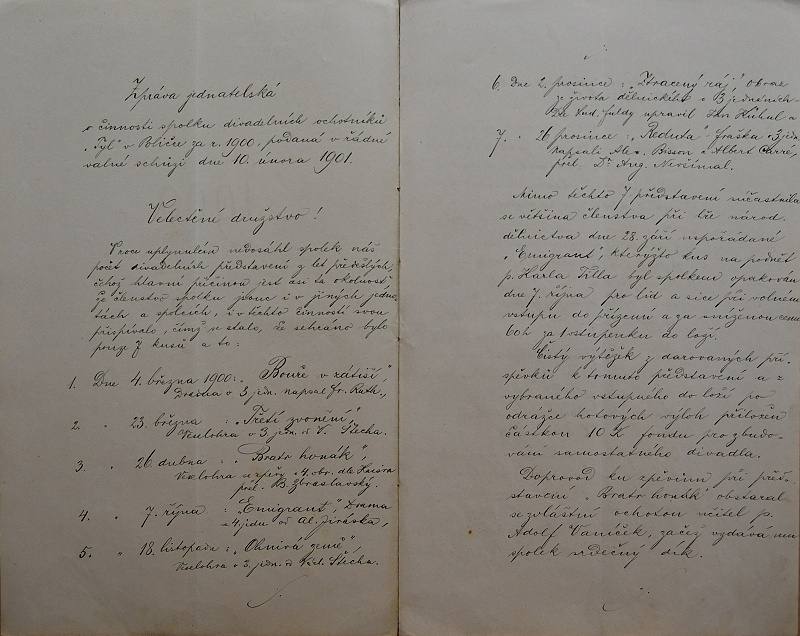 Zpráva jednatelská
o činnosti spolku divadelních ochotníků
„Tyl" v Poličce za r. 1900, podaná v řádné
valné schůzi dne 10. února 1901.
Velectěné družstvo!
V roce uplynulém nedosáhl spolek náš
počet divadelních představení z let předešlých,
čehož hlavní příčinou jest asi ta okolnost,
že členstvo spolku jsouc i v jiných jedno-
tách a spolcích, i v těchto činností svou
přispívalo, čímž se stalo, že sehráno bylo
pouze 7 kusů a to:
1. Dne 4. března 1900: „Bouře v zátiší",
Drama o 3 jedn. napsal Fr. Ruth.,
2. " 23. března : „Třetí zvonění",
Veselohra o 3 jedn. od V. Štecha.
3. " 26. dubna : „Bratr honák",
Veselohra se zpěvy o 4 obr. dle
přel. B. Zbraslavský.
4. " 7. října : „Emigrant", Drama
o 4 jedn. od Al. Jiráska,
5. " 18. listopadu : „Ohnivá země",
Veselohra o 3. jedn. od Václ. Štecha.
6. Dne 2. prosince : „Ztracený ráj", obraz
ze života dělnického o 3 jednáních.
Dle Lud. Fuldy upravil Jan Kühnl a
7. " 26 prosince : „Reduta" fraška o 3 jedn.
napsali Alex. Bisson a Albert Carré,
přel. Dr. Aug. Nevšímal.
Mimo těchto 7 představení súčastnila
se většina členstva při hře národ.
dělnictva dne 28. září uspořádané
„Emigrant", kterýžto kus na podnět
p. Karla Tilla byl spolkem opakován
dne 7. října pro lid a sice při volném
vstupu do přízemí a za sníženou cenu
60 h za 1 vstupenku do loží.
Čistý výtěžek z darovaných pří-
spěvků k tomuto představení a z
vybraného vstupného do loží po
odrážce hotových výloh přiložen
částkou 10 K fondu pro zbudo-
vání samostatného divadla.
Doprovod ku zpěvům při před-
stavení „Bratr honák" obstaral
se zvláštní ochotou učitel p.
Adolf Vaníček, začež vzdává mu
spolek srdečný dík.